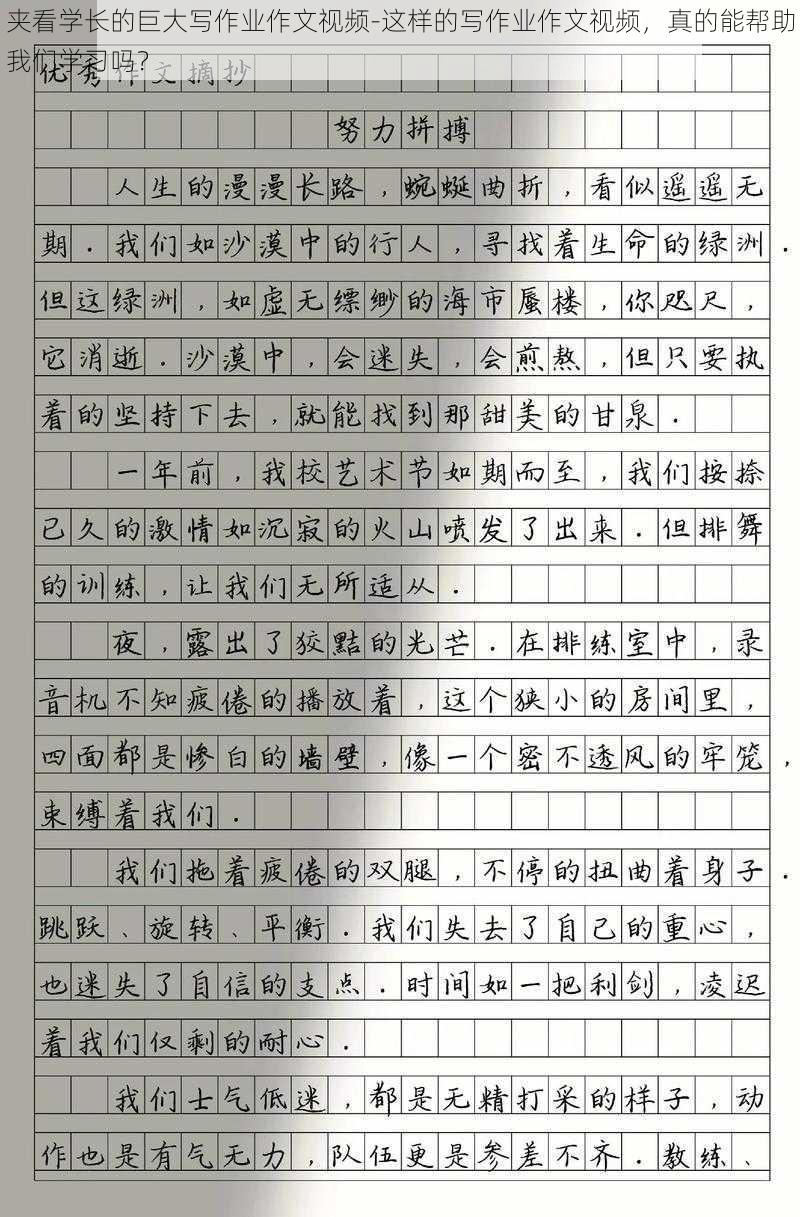 夹看学长的巨大写作业作文视频-这样的写作业作文视频，真的能帮助
我们学习吗？
优秀作文摘抄
努力拼搏
人生的漫漫长路，蜿蜒曲折，看似遥遥无
期．我们如沙漠中的行人，寻找着生命的绿洲．
但这绿洲，如虚无缥缈的海市蜃楼，你咫尺，
它消逝．沙漠中，会迷失，会煎熬，但只要执
着的坚持下去，就能找到那甜美的甘泉．
一年前，我校艺术节如期而至，我们按捺
已久的激情如沉寂的火山喷发了出来．但排舞
的训练，让我们无所适从．
夜，露出了狡黠的光芒．在排练室中，录
音机不知疲倦的播放着，这个狭小的房间里，
四面都是惨白的墙壁，像一个密不透风的牢笼，
束缚着我们．
我们拖着疲倦的双腿，不停的扭曲着身子．
跳跃、旋转、平衡．我们失去了自己的重心，
也迷失了自信的支点．时间如一把利剑，凌迟
着我们仅剩的耐心．
我们士气低迷，都是无精打采的样子，动
作也是有气无力，队伍更是参差不齐．教练、